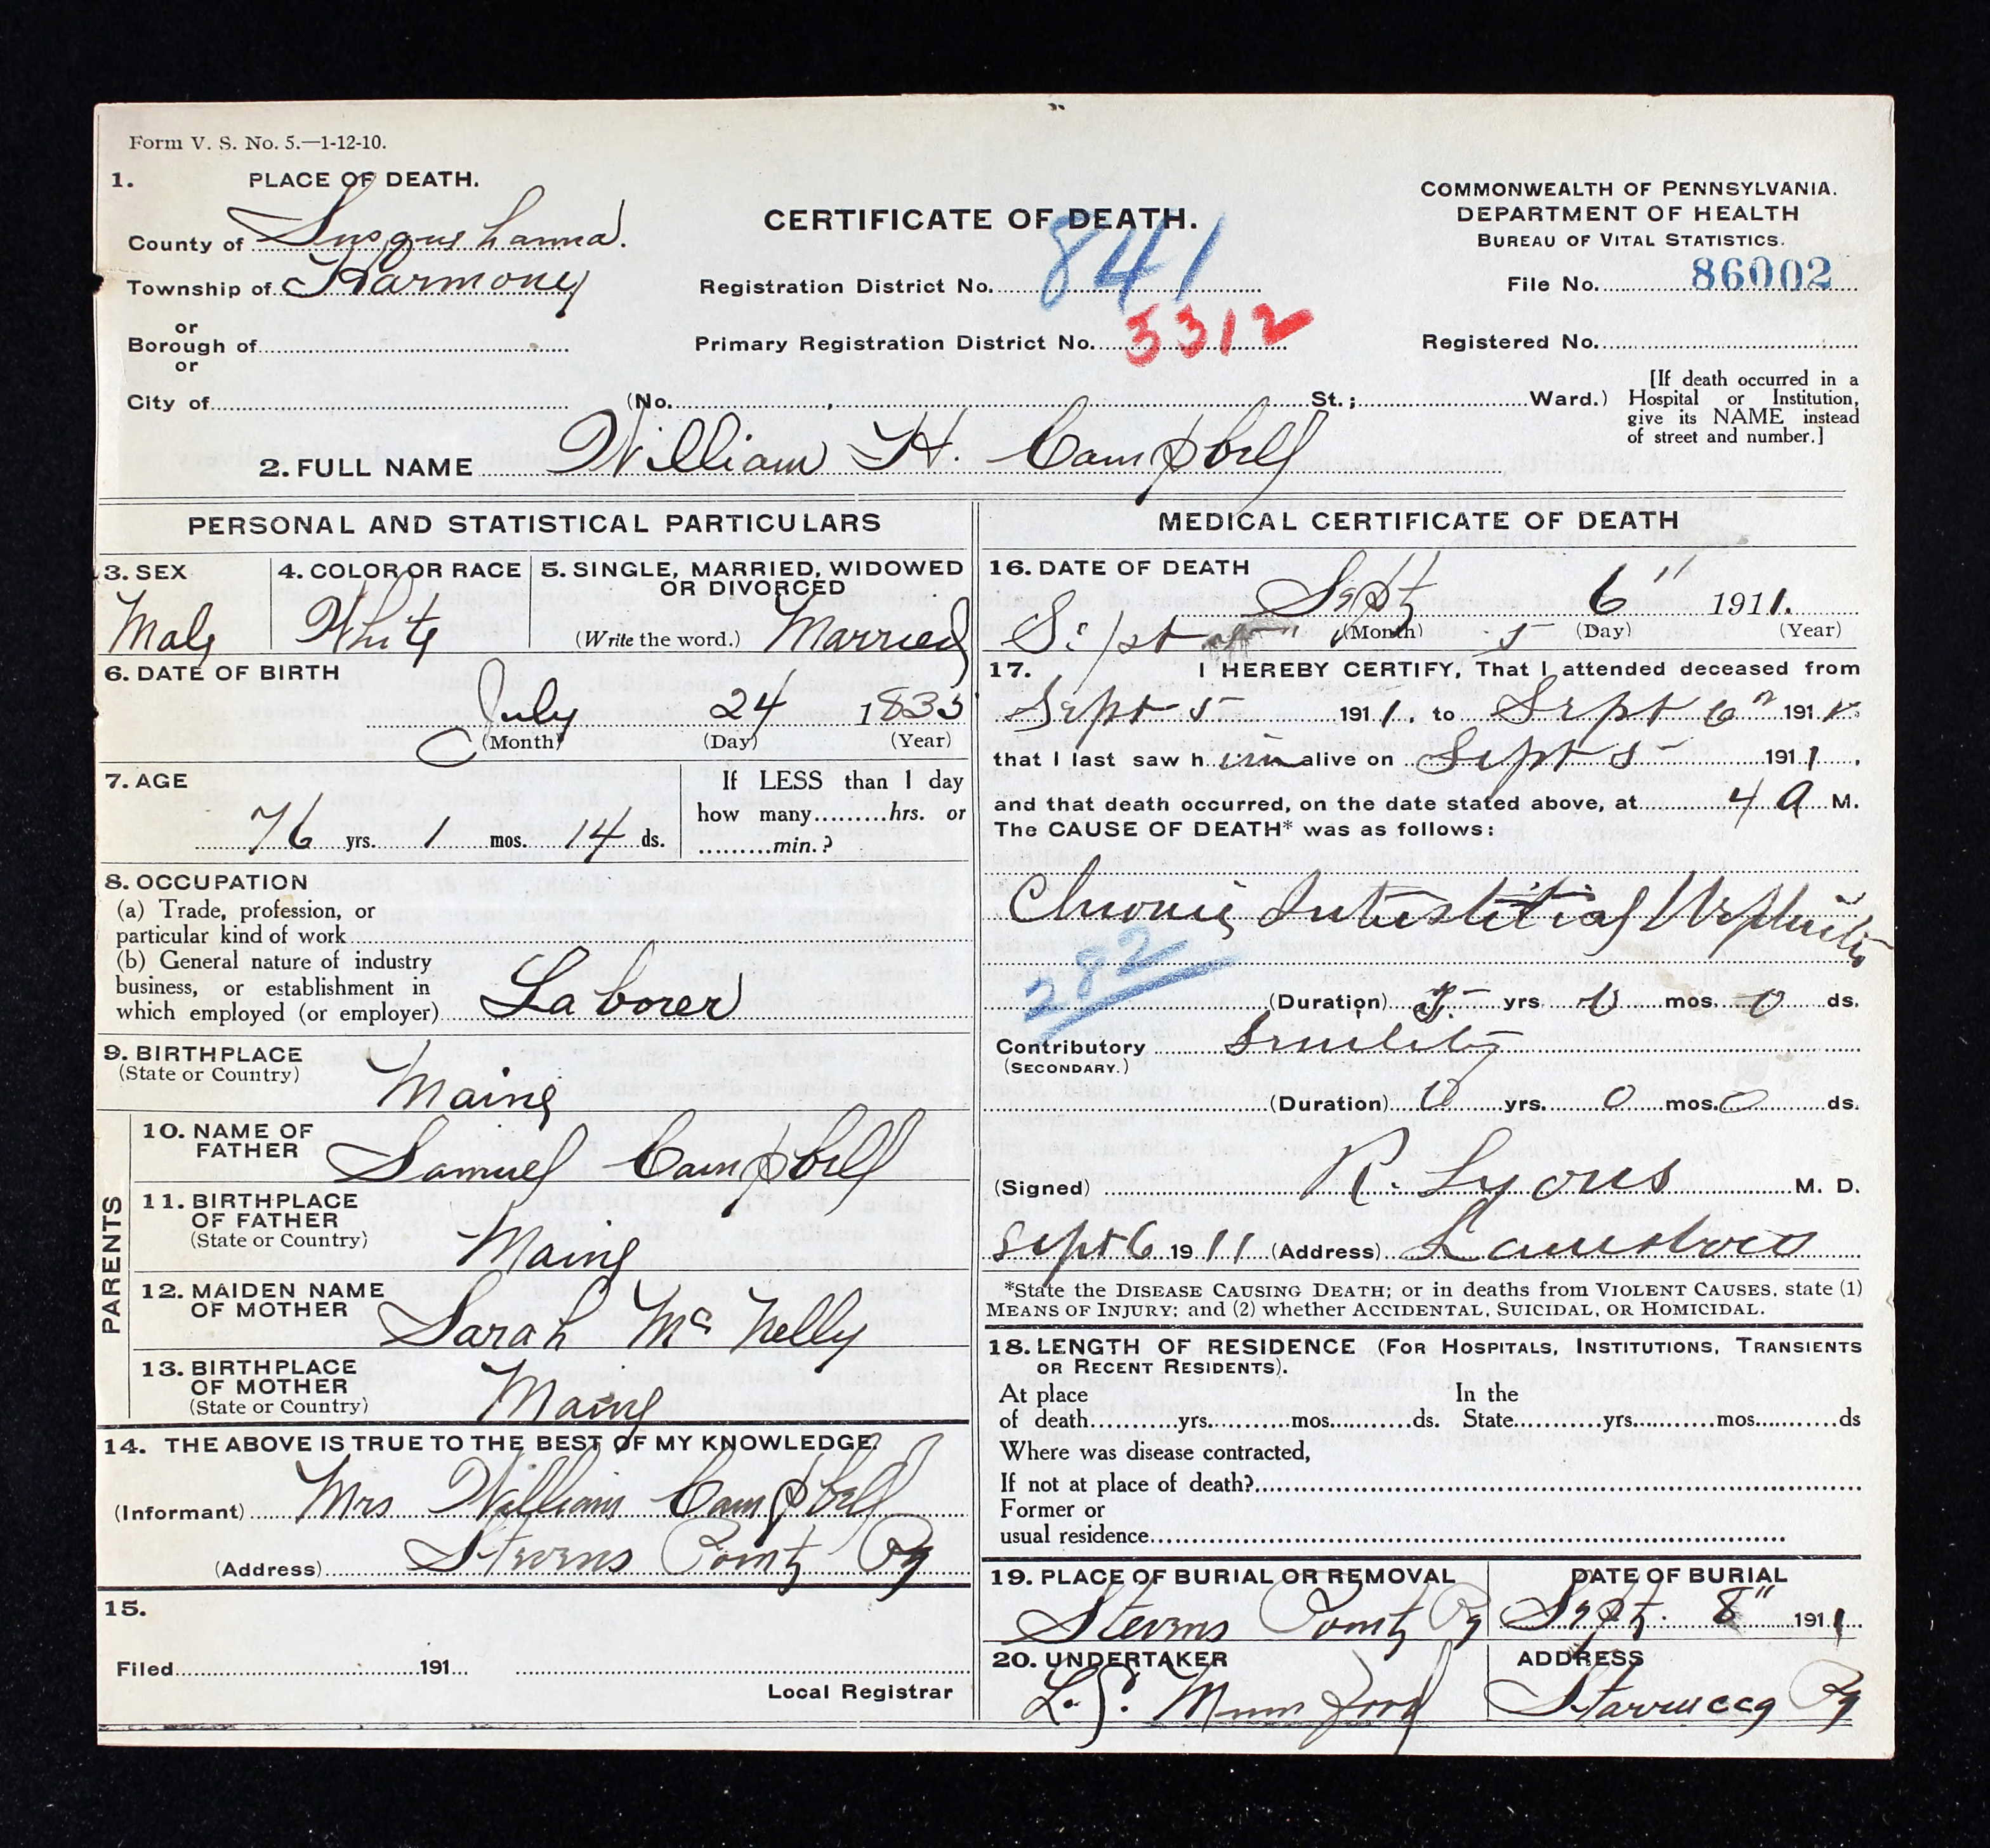 Form V. S. No. 5.—1-12-10.
1. PLACE OF DEATH.
County of Susquehanna.
Township of Harmony
or
Borough of
or
City of
(No. , St.; Ward.)
CERTIFICATE OF DEATH.
Registration District No. 841
Primary Registration District No. 3312
COMMONWEALTH OF PENNSYLVANIA.
DEPARTMENT OF HEALTH
BUREAU OF VITAL STATISTICS.
File No. 86002
Registered No.
[If death occurred in a
Hospital or Institution,
give its NAME instead
of street and number.]
2. FULL NAME William H. Campbell
PERSONAL AND STATISTICAL PARTICULARS
3. SEX
Male
4. COLOR OR RACE
White
5. SINGLE, MARRIED, WIDOWED
OR DIVORCED
(Write the word.) Married
6. DATE OF BIRTH
July 24 1835
(Month) (Day) (Year)
7. AGE
76 yrs. 1 mos. 14 ds.
If LESS than 1 day
how many hrs. or
min.?
8. OCCUPATION
(a) Trade, profession, or
particular kind of work
(b) General nature of industry
business, or establishment in
which employed (or employer) Laborer
9. BIRTHPLACE
(State or Country)
Maine
PARENTS
10. NAME OF
FATHER Samuel Campbell
11. BIRTHPLACE
OF FATHER
(State or Country) Maine
12. MAIDEN NAME
OF MOTHER Sarah Mc Nelly
13. BIRTHPLACE
OF MOTHER
(State or Country) Maine
14. THE ABOVE IS TRUE TO THE BEST OF MY KNOWLEDGE.
(Informant) Mrs William Campbell
(Address) Stevens Point Pa
15.
Filed 191
Local Registrar
MEDICAL CERTIFICATE OF DEATH
16. DATE OF DEATH
Sept 6" 1911.
Sept 5
(Month) (Day) (Year)
17. I HEREBY CERTIFY, That I attended deceased from
Sept 5 1911, to Sept 6" 1911
that I last saw h im alive on Sept 5 1911,
and that death occurred, on the date stated above, at 4 A M.
The CAUSE OF DEATH* was as follows:
Chronic Interstitial Nephritis
282
(Duration) yrs. 0 mos. 0 ds.
Contributory Senility
(SECONDARY.)
(Duration) 0 yrs. 0 mos. 0 ds.
(Signed) R. Lyons M. D.
Sept 6 1911 (Address) Lanesboro
*State the DISEASE CAUSING DEATH; or in deaths from VIOLENT CAUSES, state (1)
MEANS OF INJURY; and (2) whether ACCIDENTAL, SUICIDAL, OR HOMICIDAL.
18. LENGTH OF RESIDENCE (FOR HOSPITALS, INSTITUTIONS, TRANSIENTS
OR RECENT RESIDENTS).
At place In the
of death yrs. mos. ds. State yrs. mos. ds
Where was disease contracted,
If not at place of death?
Former or
usual residence
19. PLACE OF BURIAL OR REMOVAL
Stevens Point Pa
DATE OF BURIAL
Sept. 8" 1911
20. UNDERTAKER
L. S. Mumford
ADDRESS
Starrucca Pa